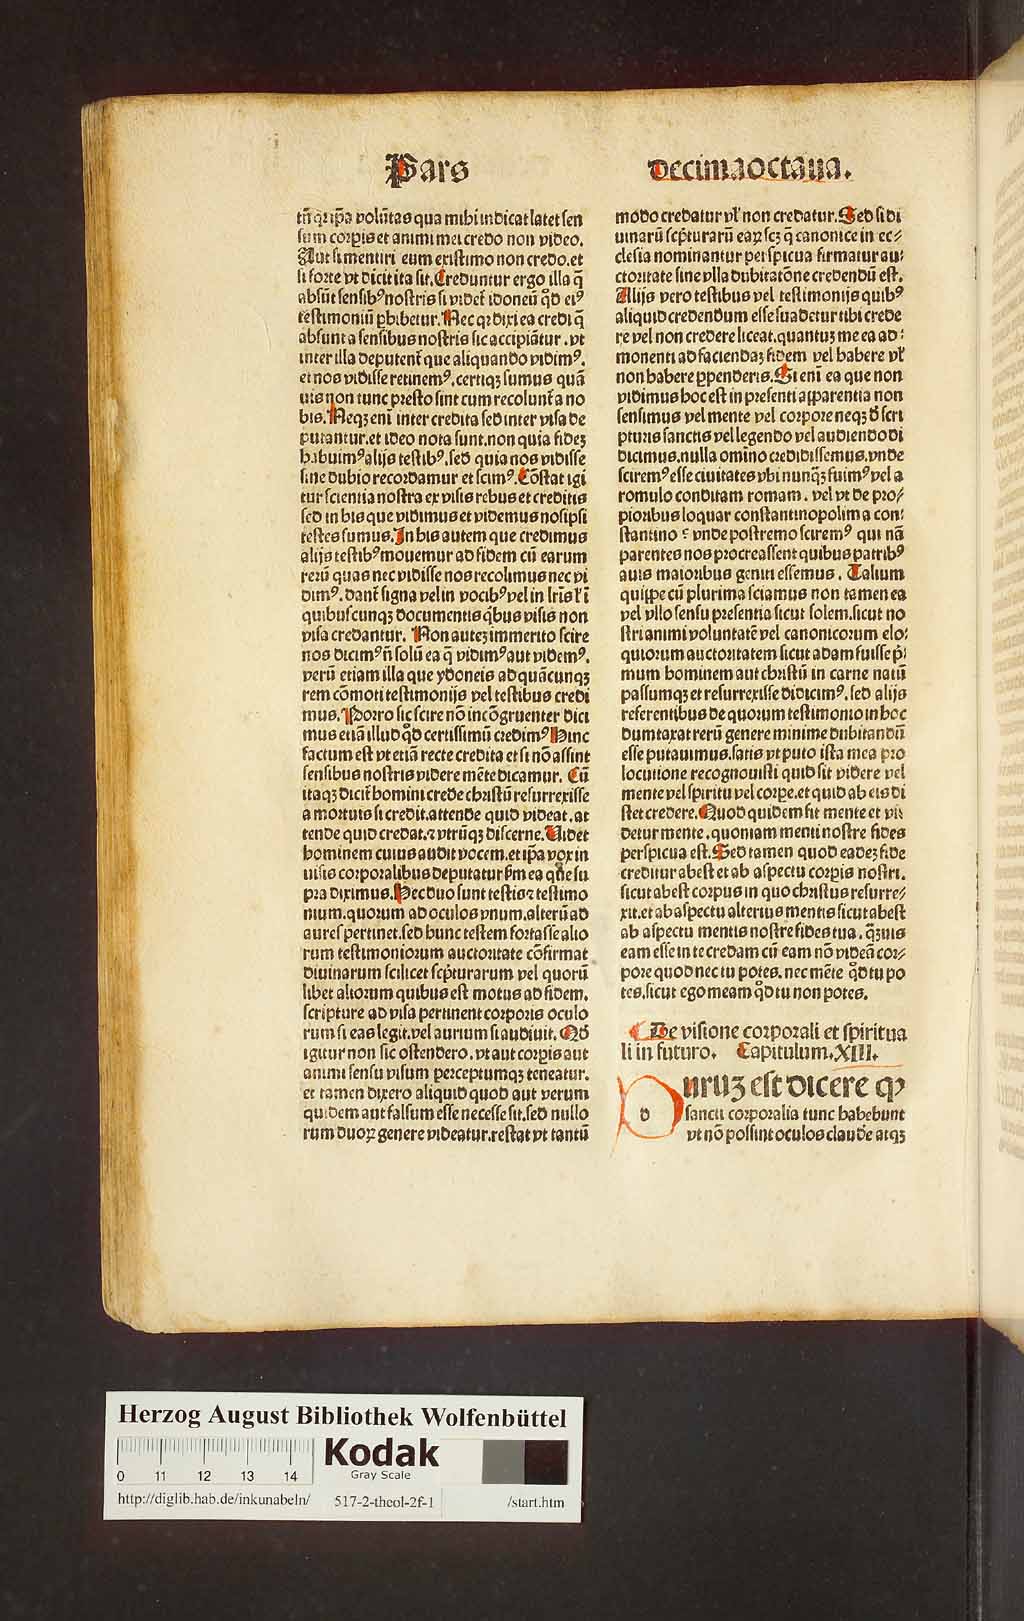 Pars
Decimaoctaua.
tñ qr ip̄a volūtas qua mihi indicat latet sen
sum corꝑis et animi mei credo non video.
Aut si mentiri eum existimo non credo. et
si forte vt dicit ita sit. Creduntur ergo illa q̄
absūt sensibꝰ nostris si videt᷑ idoneū qd̄ eiꝰ
testimoniū ꝑhibetur. Nec qꝛ dixi ea credi q̄
absunt a sensibus nostris sic accipiātur. vt
inter illa deputent᷑ que aliquando vidimꝰ.
et nos vidisse retinemꝰ. certiqꝫ sumus quā
uis non tunc presto sint cum recolunt᷑ a no
bis. Neqꝫ eni inter credita sed inter visa de
putantur. et ideo nota sunt. non quia fideꝫ
habuimꝰ alijs testibꝰ. sed quia nos vidisse
sine dubio recordamur et scimꝰ. Cōstat igi
tur scientia nostra ex visis rebus et creditis
sed in his que vidimus et videmus nosipsi
testes sumus. In his autem que credimus
alijs testibꝰ mouemur ad fidem cū earum
rerū quas nec vidisse nos recolimus nec vi
dimꝰ. dant᷑ signa vel in vocibꝰ vel in lr̄is ł ī
quibuscunqꝫ documentis qbus visis non
visa credantur. Non auteꝫ immerito scire
nos dicimꝰ ñ solū ea q̄ vidimꝰ aut videmꝰ.
verū etiam illa que ydoneis ad quācunqꝫ
rem cōmoti testimonijs vel testibus credi
mus. Porro sic scire nō incōgruenter dici
mus etiā illud qd̄ certissimū credimꝰ Hinc
factum est vt etiā recte credita et si nō assint
sensibus nostris videre mēte dicamur. Cū
itaqꝫ dicit᷑ homini crede christū resurrexisse
a mortuis si credit. attende quid videat. at
tende quid credat. ⁊ vtrūqꝫ discerne. Uidet
hominem cuius audit vocem. et ip̄a vox in
visis corporalibus deputatur ẜm ea que su
pra diximus. Hec duo sunt testis ⁊ testimo
nium. quorum ad oculos vnum. alterū ad
aures pertinet. sed hunc testem fortasse alio
rum testimoniorum auctoritate cōfirmat
diuinarum scilicet scꝑturarum vel quorū
libet aliorum quibus est motus ad fidem.
scripture ad visa pertinent corporis oculo
rum si eas legit. vel aurium si audiuit. Qd̄
igitur non sic ostendero. vt aut corꝑis aut
animi sensu visum perceptumqꝫ teneatur.
et tamen dixero aliquid quod aut verum
quidem aut falsum esse necesse sit. sed nullo
rum duoꝝ genere videatur. restat vt tantū
modo credatur vł non credatur. Sed si di
uinarū scꝑturarū eaꝝ scꝫ q̄ canonice in ec⸗
clesia nominantur perspicua firmatur au⸗
ctoritate sine vlla dubitatōne credendū est.
Alijs vero testibus vel testimonijs quibꝰ
aliquid credendum esse suadetur tibi crede
re vel non credere liceat. quantuꝫ me ea ad⸗
monenti ad faciendaꝫ fidem vel habere vł
non habere ꝑpenderis. Si eni ea que non
vidimus hoc est in presenti apparentia non
sensimus vel mente vel corpore neqꝫ d̄ scri
pturis sanctis vel legendo vel audiendo di
dicimus. nulla omīno credidissemus. vnde
sciremꝰ esse ciuitates vbi nunqꝫ fuimꝰ vel a
romulo conditam romam. vel vt de pro⸗
pioribus loquar constantinopolim a con⸗
stantino? vnde postremo sciremꝰ qui nā
parentes nos procreassent quibus patribꝰ
auis maioribus geniti essemus. Talium
quippe cū plurima sciamus non tamen ea
vel vllo sensu presentia sicut solem. sicut no
stri animi voluntatē vel canonicorum elo⸗
quiorum auctoritatem sicut adam fuisse pͥ⸗
mum hominem aut christū in carne natū
passumqꝫ et resurrexisse didicimꝰ. sed alijs
referentibus de quorum testimonio in hoc
dumtaxat rerū genere minime dubitandū
esse putauimus. satis vt puto ista mea pro
locutione recognouisti quid sit videre vel
mente vel spiritu vel corꝑe. et quid ab eis di
stet credere. Quod quidem fit mente et vi⸗
detur mente. quoniam menti nostre fides
perspicua est. Sed tamen quod eadeꝫ fide
creditur abest et ab aspectu corꝑis nostri.
sicut abest corpus in quo christus resurre⸗
xit. et ab aspectu alterius mentis sicut abest
ab aspectu mentis nostre fides tua. qꝫuis
eam esse in te credam cū eam nō videā cor⸗
pore quod nec tu potes. nec mēte qd̄ tu po
tes. sicut ego meam qd̄ tu non potes.
De visione corporali et spiritua
li in futuro. Capitulum. XIII.
Duruꝫ est dicere ꝙ
sancti corporalia tunc habebunt
vt nō possint oculos claudere atqꝫ
Herzog August Bibliothek Wolfenbüttel
Kodak
Gray Scale
0 11 12 13 14
http://diglib.hab.de/inkunabeln/ 517-2-theol-2f-1 /start.htm